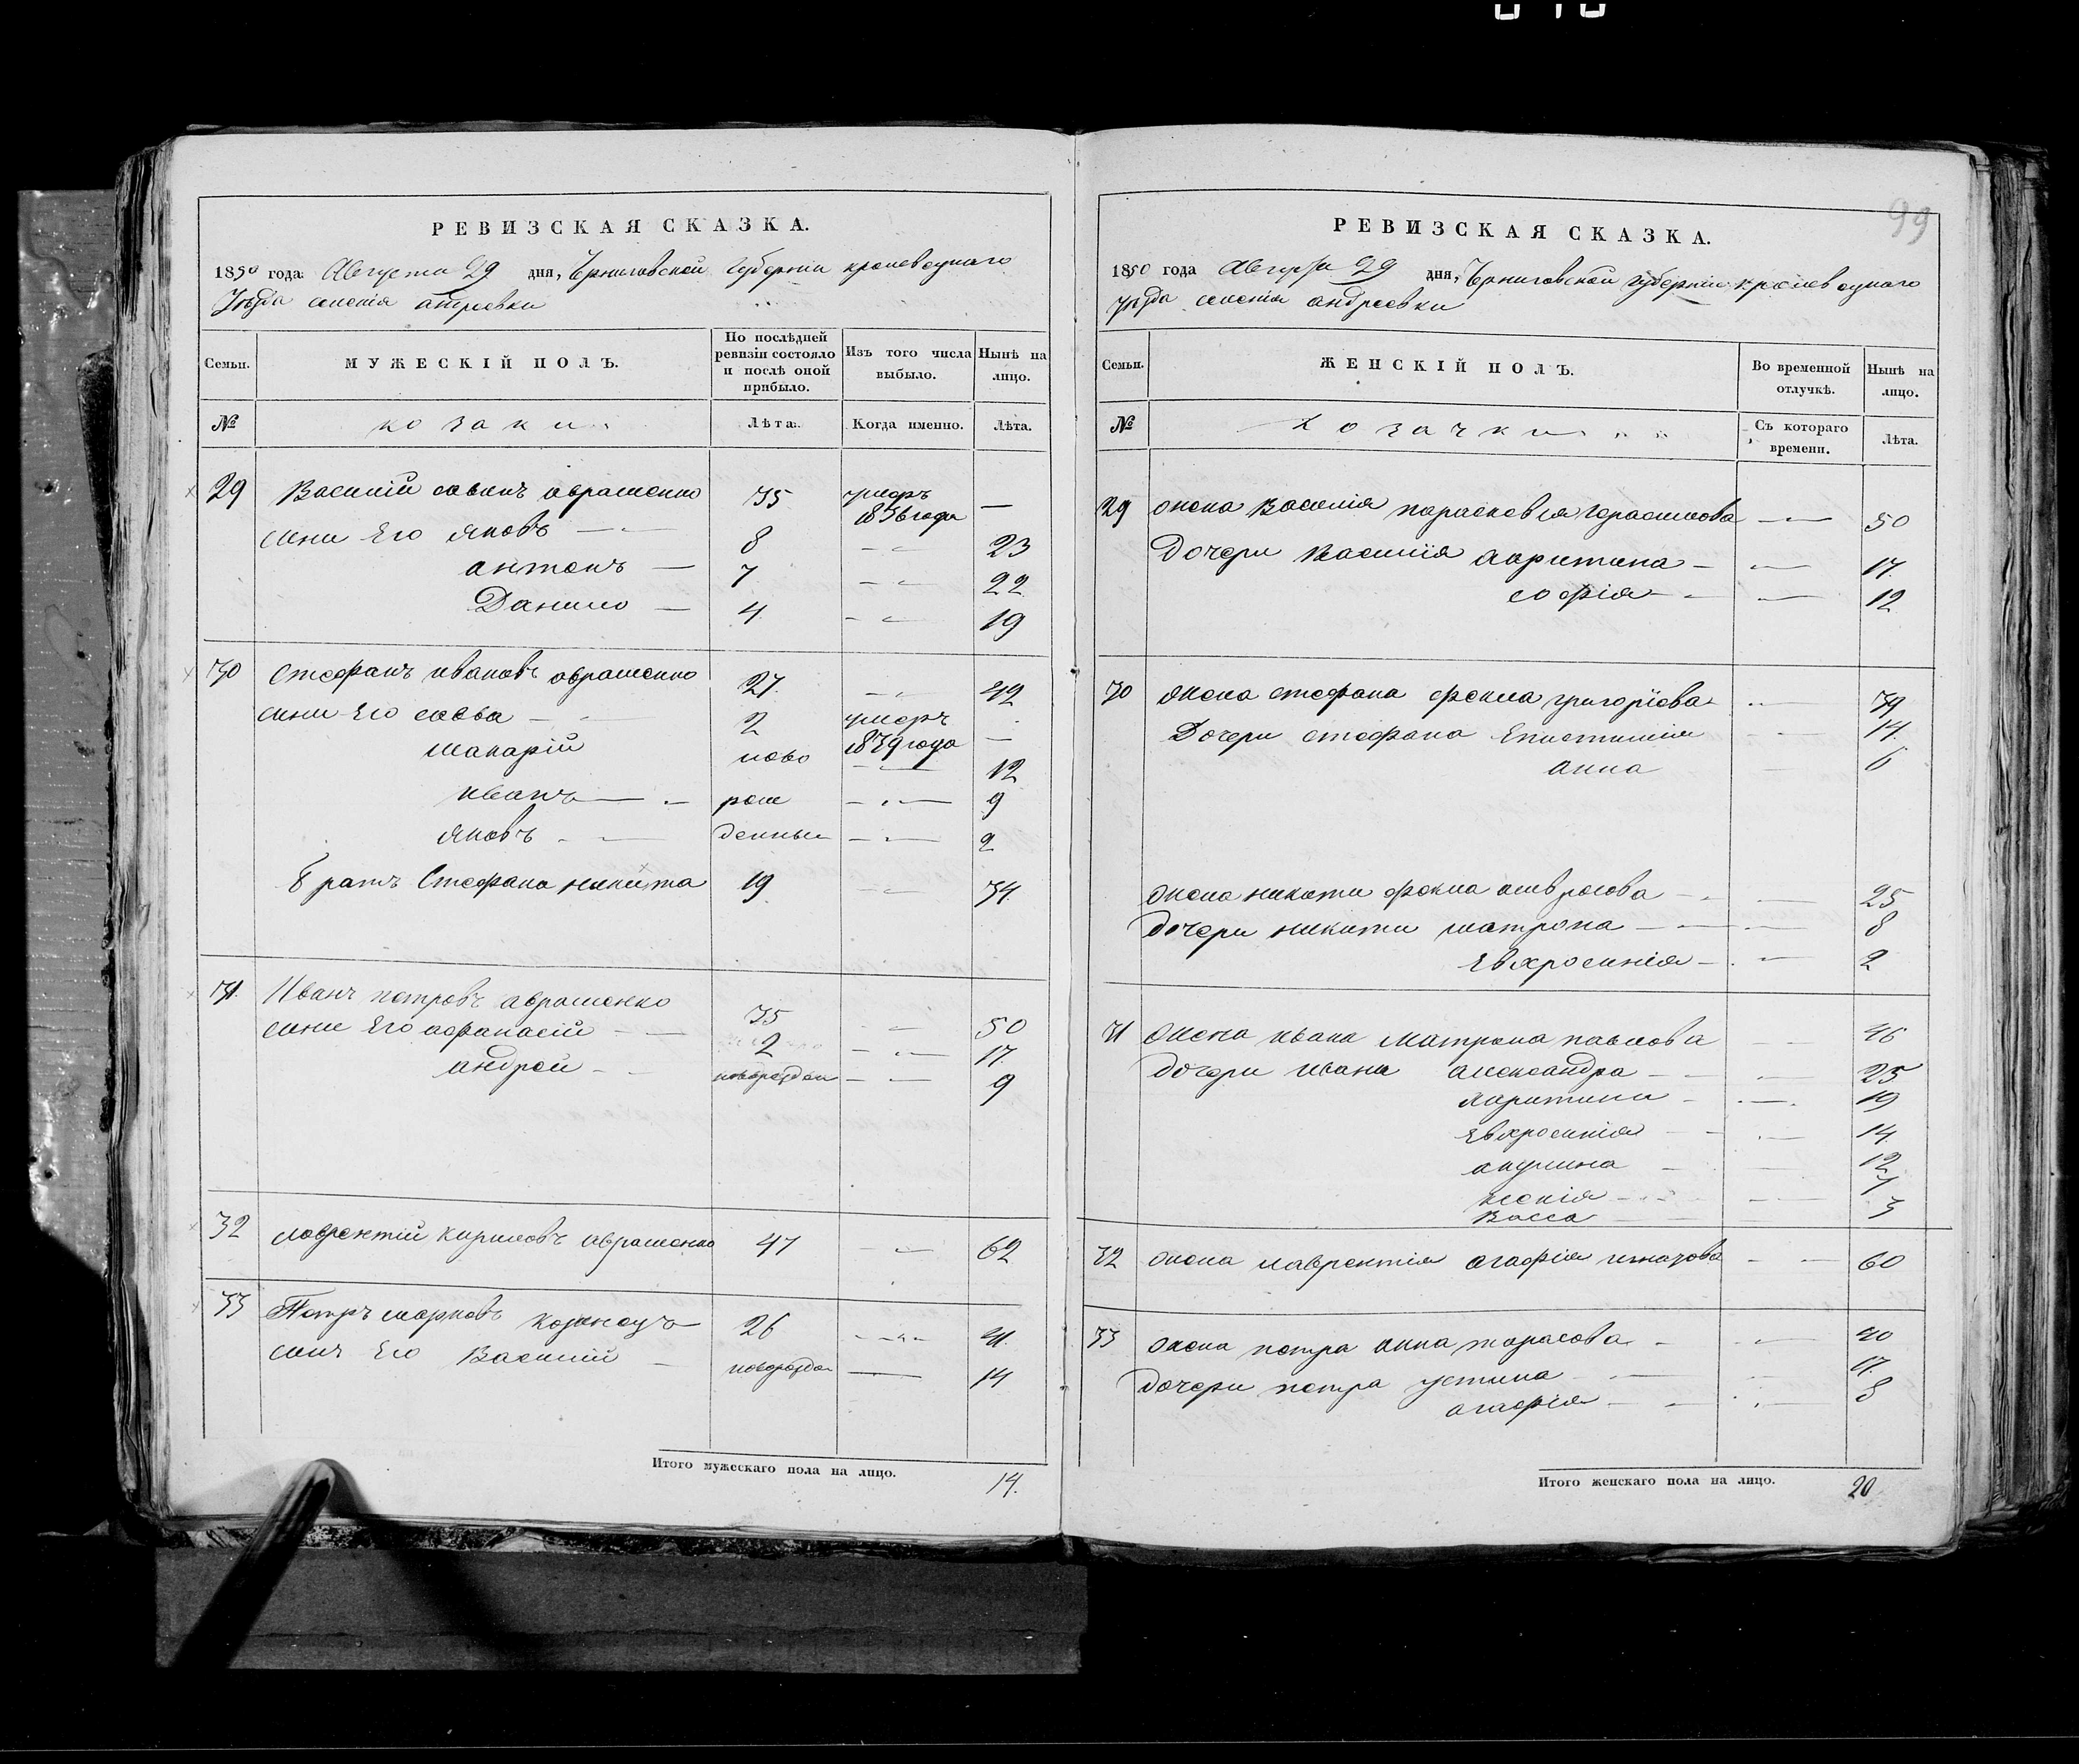 99
РЕВИЗСКАЯ СКАЗКА.
1850 года Августа 29 дня, Черниговской Губернии кролевецкаго
Уезда селения андреевки
Семьи. МУЖЕСКІЙ ПОЛЪ. По послѣдней ревизіи состояло и послѣ оной прибыло. Изъ того числа выбыло. Нынѣ на лицо.
№ козаки Лѣта. Когда именно. Лѣта.
29 Василий савинъ аврашенко 35 умеръ 1836 года —
сини Его яковъ — 8 — 23
антонъ — 7 — 22
Данило — 4 — 19
30 Стефанъ ивановъ аврашенко 27 — 42
сини Его савва — 2 умеръ 1839 года —
макарій ново — 12
иванъ — рож — 9
яковъ — денные — 2
братъ Стефана никита 19 — 34
31 Иванъ петровъ аврашенко 35 — 50
сини Его афанасій — 2 — 17
андрей — новорожден — 9
32 лаврентій кириловъ аврашенко 47 — 62
33 Петръ марковъ 26 — 41
синъ Его Василий — новорожден — 14
Итого мужескаго пола на лицо. 14.
РЕВИЗСКАЯ СКАЗКА.
1850 года Августа 29 дня, Черниговской губерніи кролевецкаго
уезда селенія андреевки
Семьи. ЖЕНСКІЙ ПОЛЪ. Во временной отлучкѣ. Нынѣ на лицо.
№ козачки Съ котораго времени. Лѣта.
29 жена Василія парасковея герасимова — 50
Дочери Василія — 17
софія — 12
30 жена стефана фекла григоріева — 39
Дочери стефана Епистимія — 14
анна — 6
жена никити фекла — 25
дочери никити матрона — 8
Евхросинія — 2
31 жена ивана матрона павлова — 46
дочери ивана александра — 25
— 19
Евхросинія — 14
акулина — 12
ксенія — 7
Васса — 3
32 жена лаврентія агафія игнатова — 60
33 жена петра анна тарасова — 40
дочери петра устина — 17
агафія — 8
Итого женскаго пола на лицо. 20